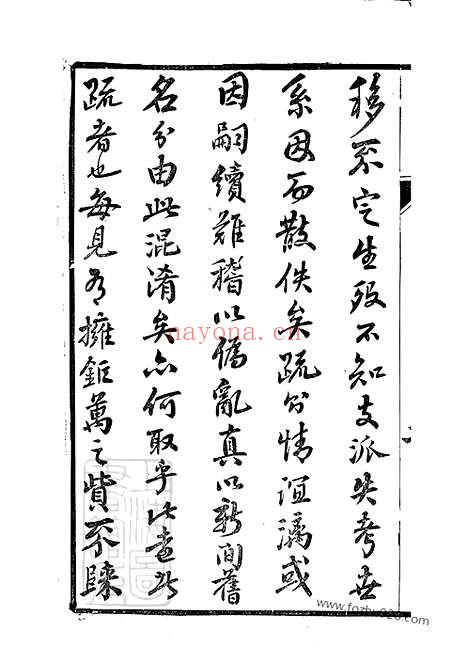 移不定生殁不知支派失考世
系因而散佚矣疏公情谊漓或
因嗣續难稽以偽亂真以新间舊
名分由此混淆矣亦何取乎此者此
疏者也每見有擁鉅萬之貲不踈
nayona.cn
www.fozhu920.com